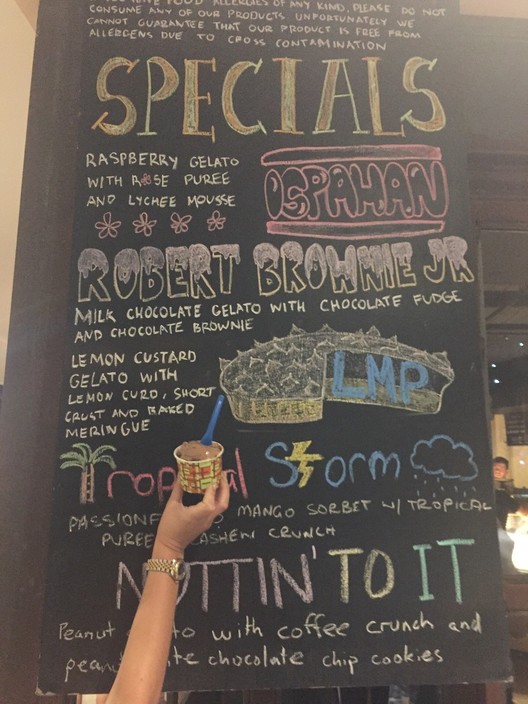 HAVE FOOD ALLERGIES OF ANY KIND, PLEASE DO NOT
CONSUME ANY OF OUR PRODUCTS UNFORTUNATELY WE
CANNOT GUARANTEE THAT OUR PRODUCT IS FREE FROM
ALLERGENS DUE TO CROSS CONTAMINATION
SPECIALS
RASPBERRY GELATO
WITH ROSE PUREE
AND LYCHEE MOUSSE
OSPAHAN
ROBERT BROWNIE JR
MILK CHOCOLATE GELATO WITH CHOCOLATE FUDGE
AND CHOCOLATE BROWNIE
LEMON CUSTARD
GELATO WITH
LEMON CURD, SHORT
CRUST AND BAKED
MERINGUE
LMP
Tropical Storm
MANGO SORBET W/ TROPICAL
PUREE CASHEW CRUNCH
NUTTIN' TO IT
Peanut with coffee crunch and
chocolate chip cookies